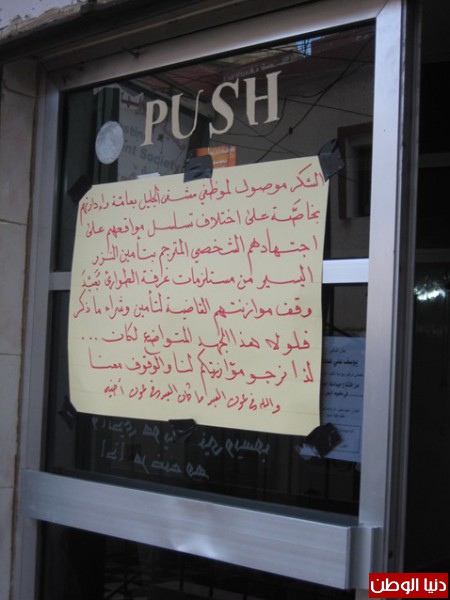 PUSH
الشكر موصول لموظفي مشفى الجليل بعامة وإدارتهم
بخاصّة على اختلاف تسلسل مواقعهم على
اجتهادهم الشخصي المترجم بتأمين النزر
اليسير من مستلزمات غرفة الطوارئ بُعَيْدَ
وقف موازنتهم الخاصة لتأمين وشراء ما ذكر
فلولا هذا الجهد المتواضع لكان ...
لذا نرجو مؤازرتكم لنا والوقوف معنا
والله في عون العبد ما كان العبد في عون أخيه
دنيا الوطن